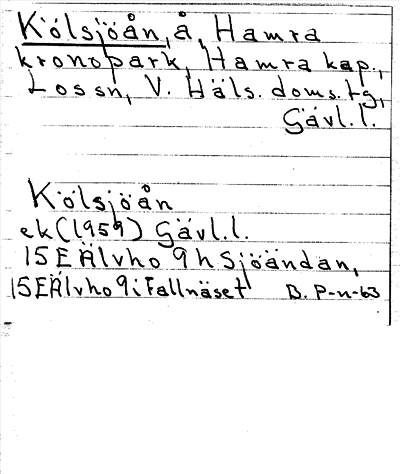 Kölsjöån, å, Hamra
kronopark, Hamra kap.,
Lossn, V. Häls. doms.tg,
Gävl.l.
Kölsjöån
ek (1959) Gävl.l.
15E Älvho 9h Sjöändan,
15E Älvho 9i Fallnäset B. P-n-63